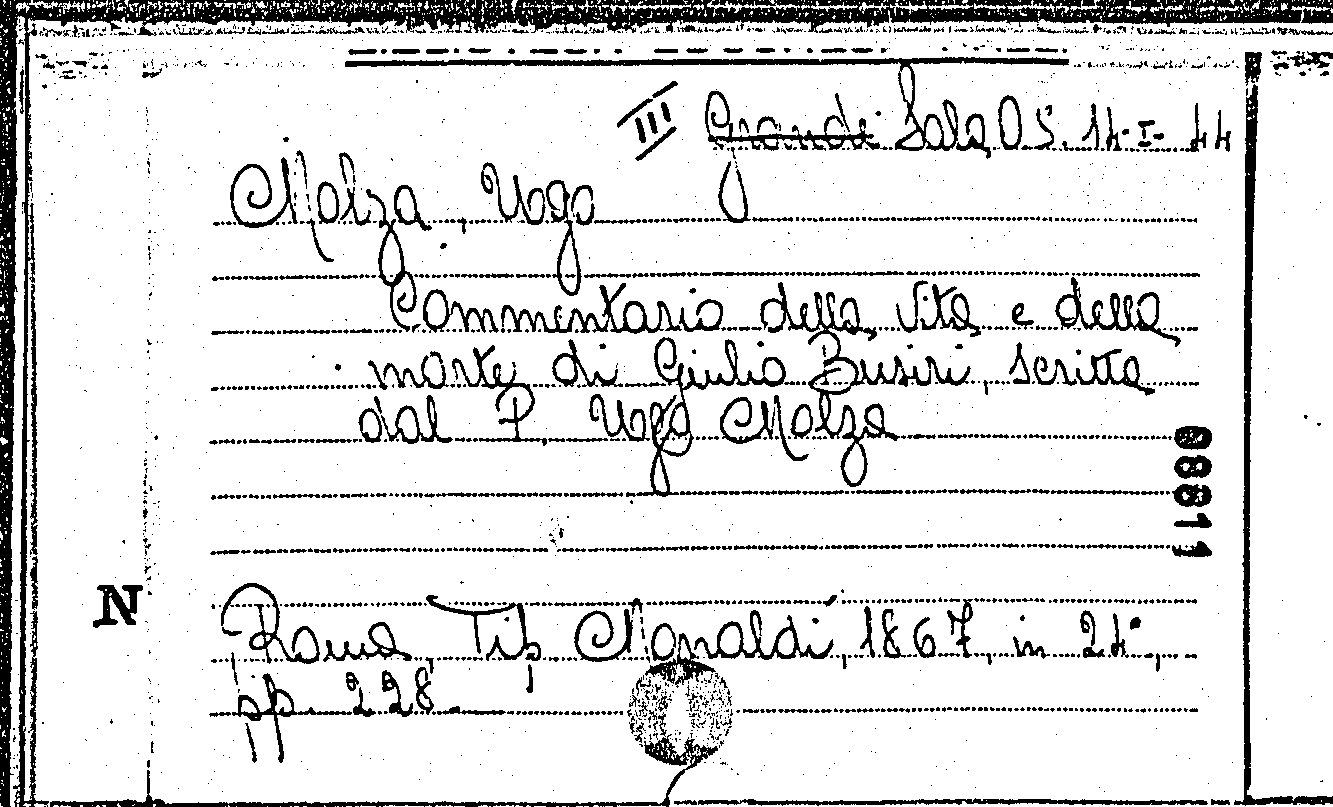 III Grande Sala, O S. 14-I-44
Molza, Ugo
Commentario della vita e della
morte di Giulio Busiri, scritta
dal P. Ugo Molza
08811
N
Roma, Tip. Monaldi, 1867, in 24°,
pp. 228.